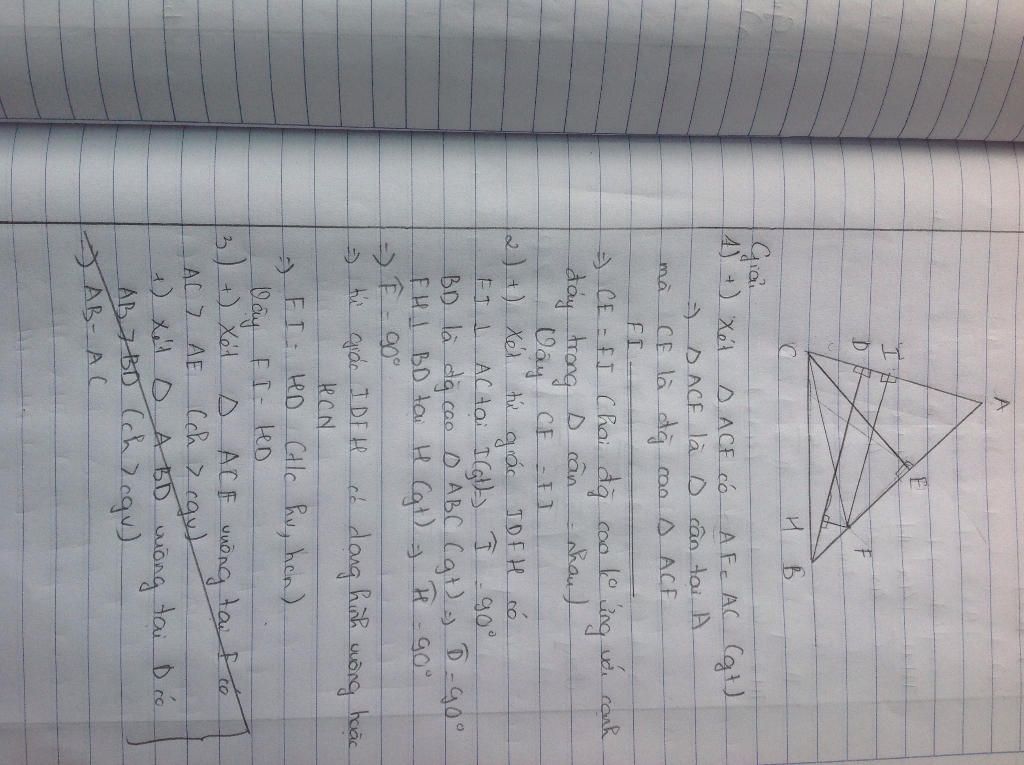 A
I
D
C
E
F
H
B
Giải
1) +) Xét Δ ACF có AF = AC (gt)
⇒ Δ ACF là Δ cân tại A
mà CE là đg cao Δ ACF
FI
⇒ CE = FI (hai đg cao ứng với cạnh
đáy trong Δ cân = nhau)
Vậy CE = FI
2) +) Xét tứ giác IDFH có
FI ⊥ AC tại I (gt) ⇒ Î = 90°
BD là đg cao Δ ABC (gt) ⇒ D̂ = 90°
FH ⊥ BD tại H (gt) ⇒ Ĥ = 90°
⇒ F̂ = 90°
⇒ tứ giác IDFH có dạng hình vuông hoặc
HCN
⇒ FI = HD (t/c hv, hcn)
Vậy FI = HD
3) +) Xét Δ ACE vuông tại E có
AC > AE (ch > cgv)
+) Xét Δ ABD vuông tại D có
AB > BD (ch > cgv)
⇒ AB - AC